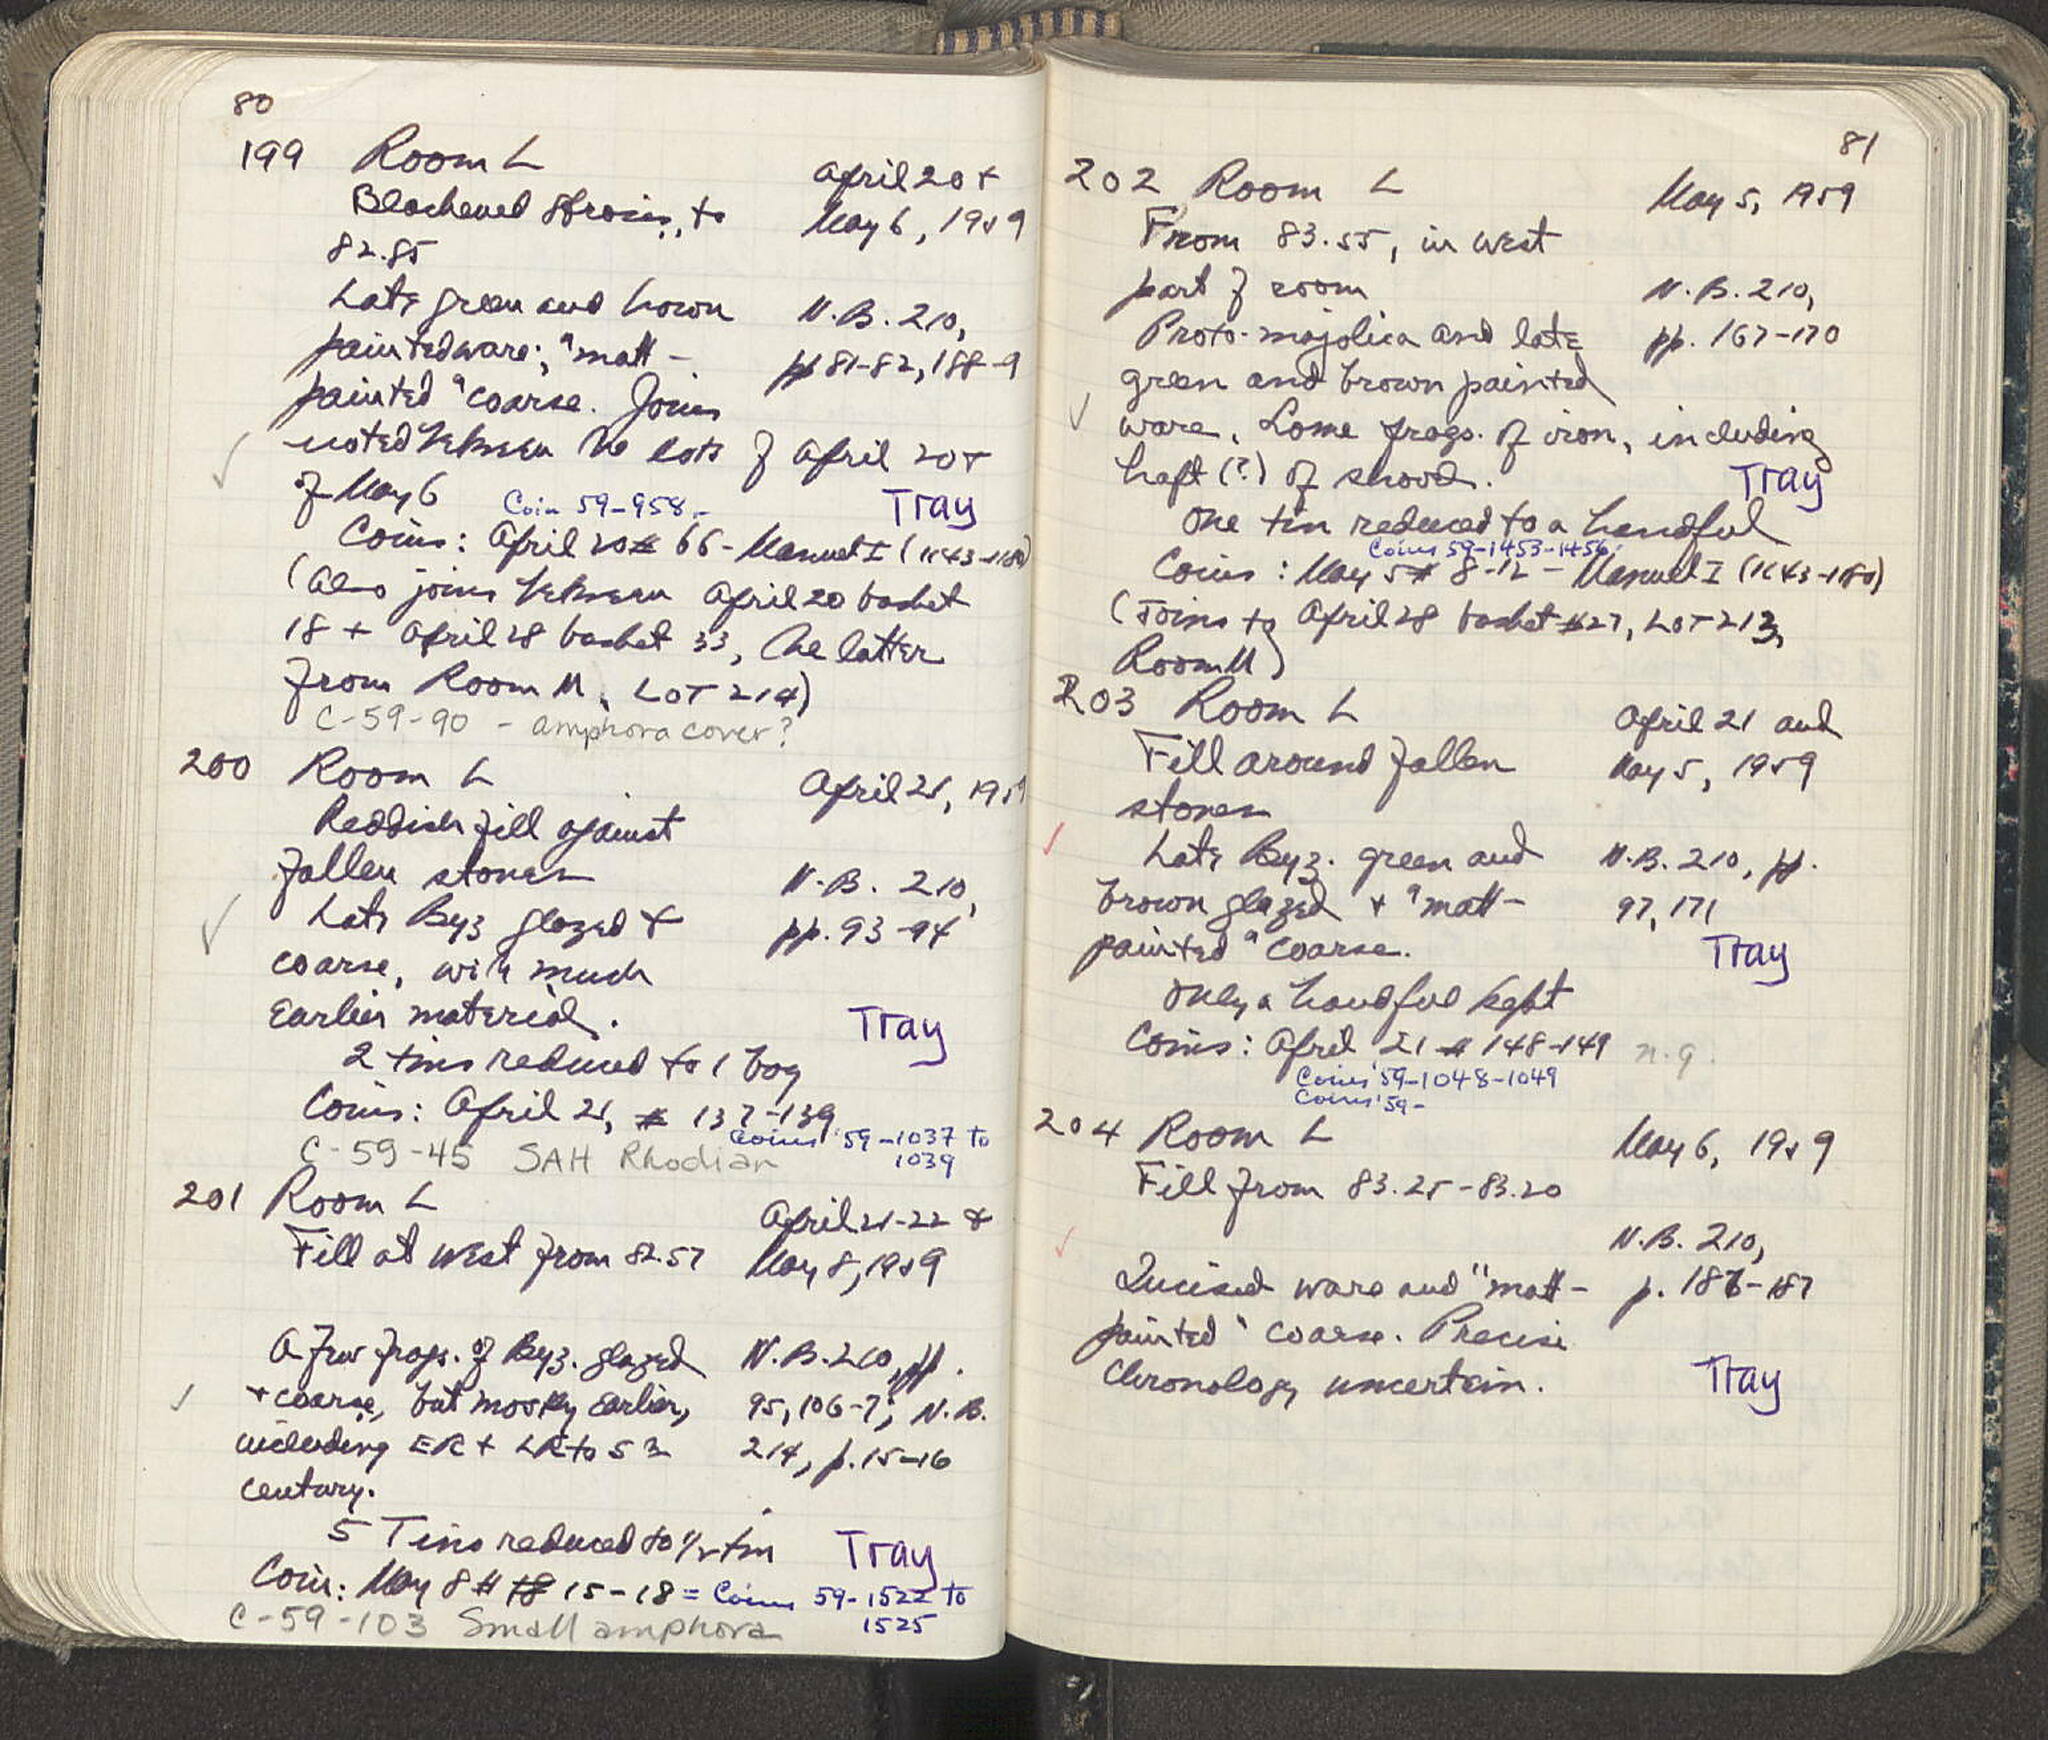 80
199 Room L April 20 +
Blackened stroses, to May 6, 1959
82.85
Late green and brown N.B. 210,
painted ware; "matt- pp 81-82, 188-9
painted" coarse. Joins
noted between the lots of April 20 +
of May 6 Coin 59-958.- Tray
Coins: April 20 # 66 - Manuel I (1143-1180)
(Also joins between April 20 basket
18 + April 28 basket 33, the latter
from Room M, LOT 214)
C-59-90 - amphora cover?
200 Room L April 21, 1959
Reddish fill against
fallen stones N.B. 210,
Late Byz glazed + pp. 93-94
coarse, with much
earlier material. Tray
2 tins reduced to 1 bag
Coins: April 21, # 137-139
Coins 59-1037 to
1039
C-59-45 SAH Rhodian
201 Room L April 21-22 &
Fill at west from 82.57 May 8, 1959
A few frags. of Byz. glazed N.B. 210, pp.
+ coarse, but mostly earlier, 95, 106-7; N.B.
including ER + LR to 5th 214, p. 15-16
century.
5 Tins reduced to 1/2 tin Tray
Coin: May 8 # 15-18 = Coins 59-1522 to
1525
C-59-103 Small amphora
81
202 Room L May 5, 1959
From 83.55, in west
part of room N.B. 210,
Proto-majolica and late pp. 167-170
green and brown painted
ware. Some frags. of iron, including
haft (?) of sword. Tray
One tin reduced to a handful
Coins 59-1453-1456.
Coins: May 5 # 8-12 - Manuel I (1143-1180)
(Joins to April 28 basket #27, LOT 213,
Room M)
203 Room L April 21 and
Fill around fallen May 5, 1959
stones
Late Byz. green and N.B. 210, pp.
brown glazed + "matt- 97, 171
painted" coarse. Tray
Only a handful kept
Coins: April 21 # 148-149 n.g.
Coins 59-1048-1049
Coins 59-
204 Room L May 6, 1959
Fill from 83.25-83.20
N.B. 210,
Incised ware and "matt- p. 186-187
painted" coarse. Precise
Chronology uncertain. Tray